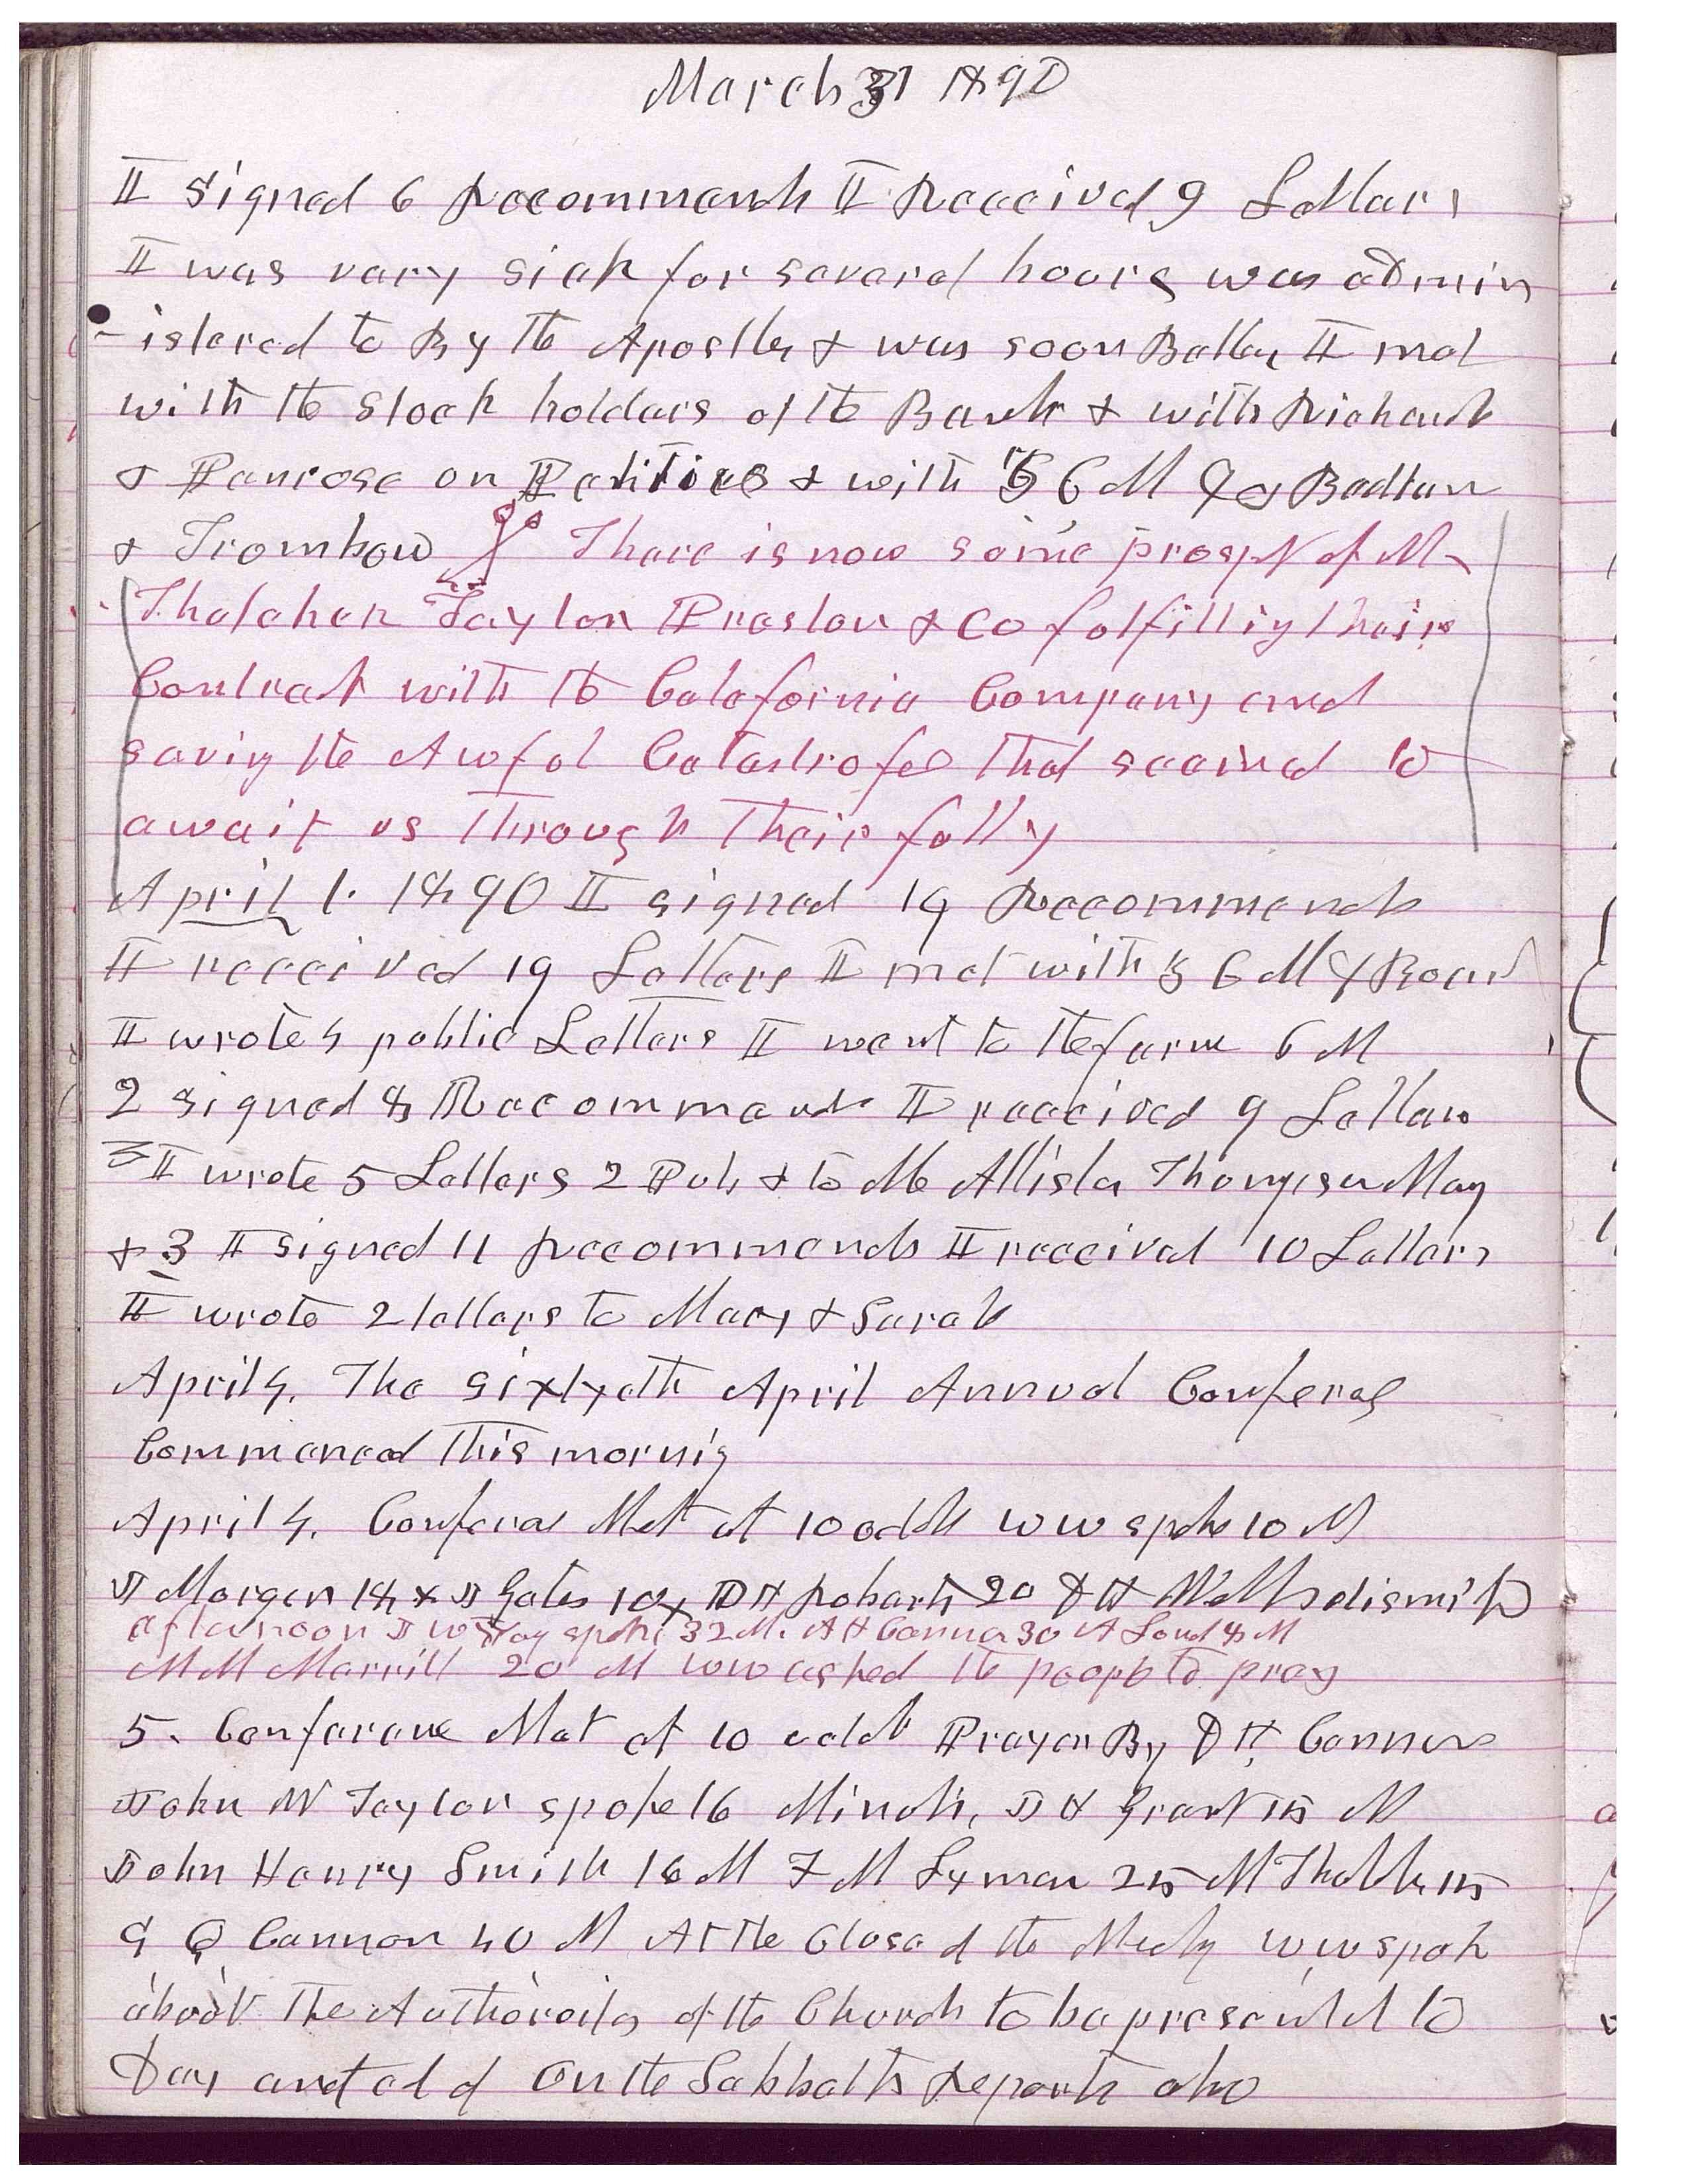 March 31 1890
I signed 6 Recommends I Received 9 Letters
I was very sick for several hours was admin
-istered to By the Apostles & was soon Better I met
with the stock holders of the Bank & with Richards
& Penrose on Politices & with 6 M
& Trombow There is now some prospet of M
Thatcher Taylor Preston & Co fulfillig their
Contract with the Calafornia Company and
savig the Awful Catastrofee that seemed to
await us through their folly
April 1. 1890 I signed 19 Recommends
I received 19 Letters I met with 6 M
I wrote 4 public Letters I went to the farm 6 M
2 signed 8 Recommends I received 9 Letters
I wrote 5 Letters 2 Pub & to Mc Allister Thompson May
& 3 I signed 11 Recommends I received 10 Letters
I wrote 2 letters to Mary & Sarah
April 4. The sixtyeth April Annual
Commenced this mornig
April 4. Met at 10 oclok WW spoke 10 M
J Morgan 18 x J Gates 10 x B H Roberts 20 D H Wells dismisd
afternoon spoke 32 M. A H Cannon 30 A Lund 8 M
M M Merrill 20 M WW asked the people to pray
5. Conferance Met at 10 oclok Prayer By D H Cannon
John W Taylor spoke 16 Minuts, J H Grant 15 M
John Henry Smith 16 M F M Lyman 25 M Thatcher 15
G Q Cannon 40 M At the Close of the Meetig WW spok
about the Authoroites of the Church to be presented to
Day and on the Sabbath Reports also